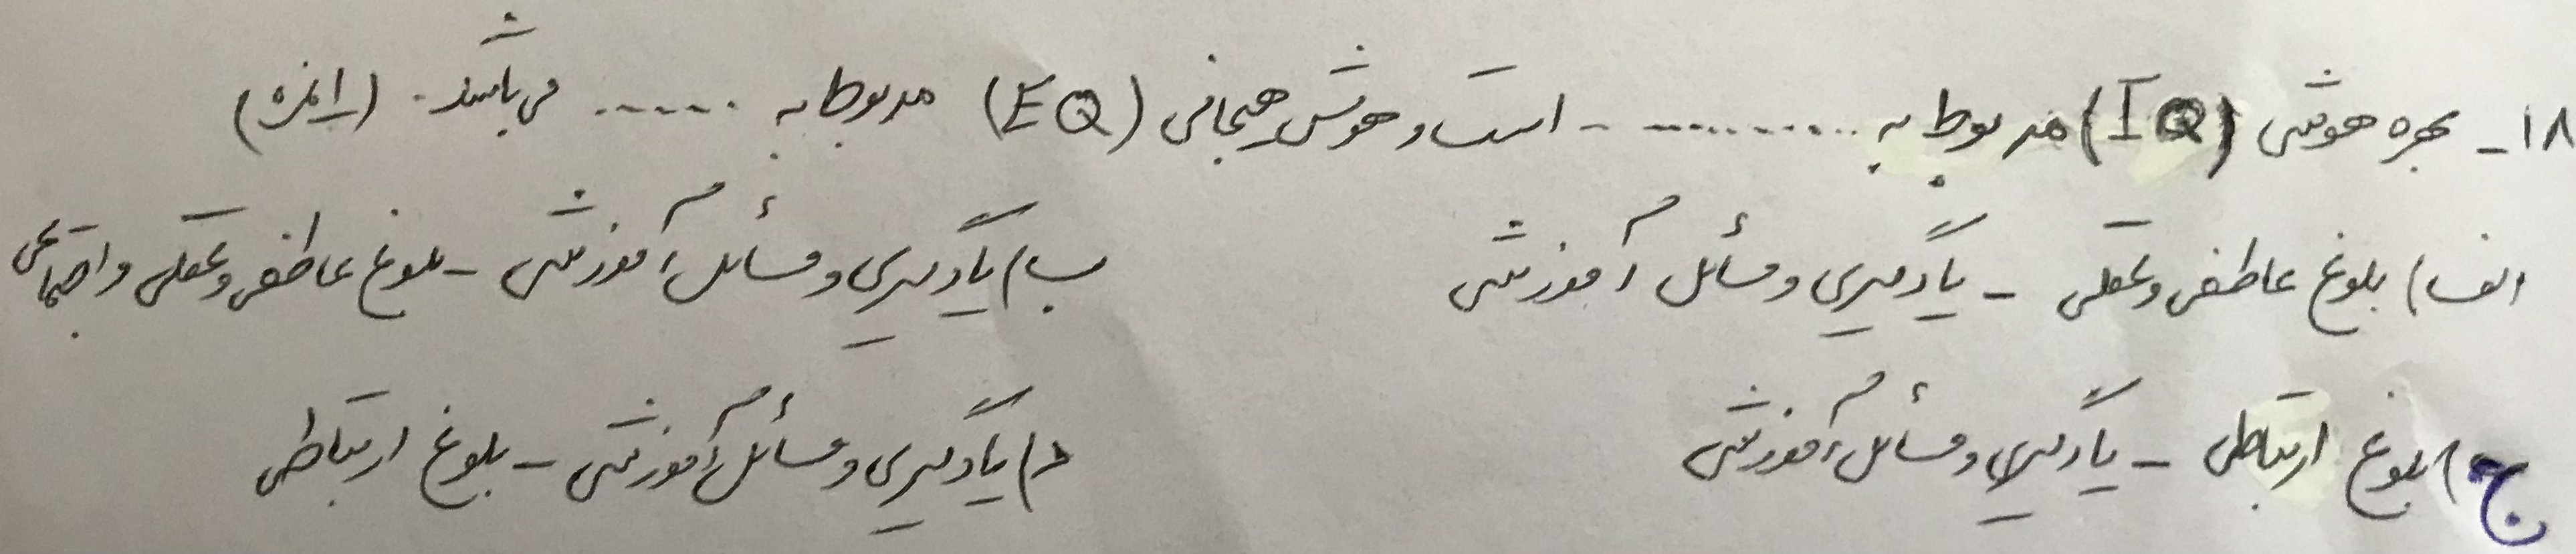 ۱۸- بهره هوشی (IQ) مربوط به ............ است و هوش هیجانی (EQ) مربوط به ...... می باشد. (۱نمره)
الف) بلوغ عاطفی و عقلی - یادگیری و مسائل آموزشی ب) یادگیری و مسائل آموزشی - بلوغ عاطفی و عقلی و اجتماعی
ج) بلوغ ارتباطی - یادگیری و مسائل آموزشی د) یادگیری و مسائل آموزشی - بلوغ ارتباطی